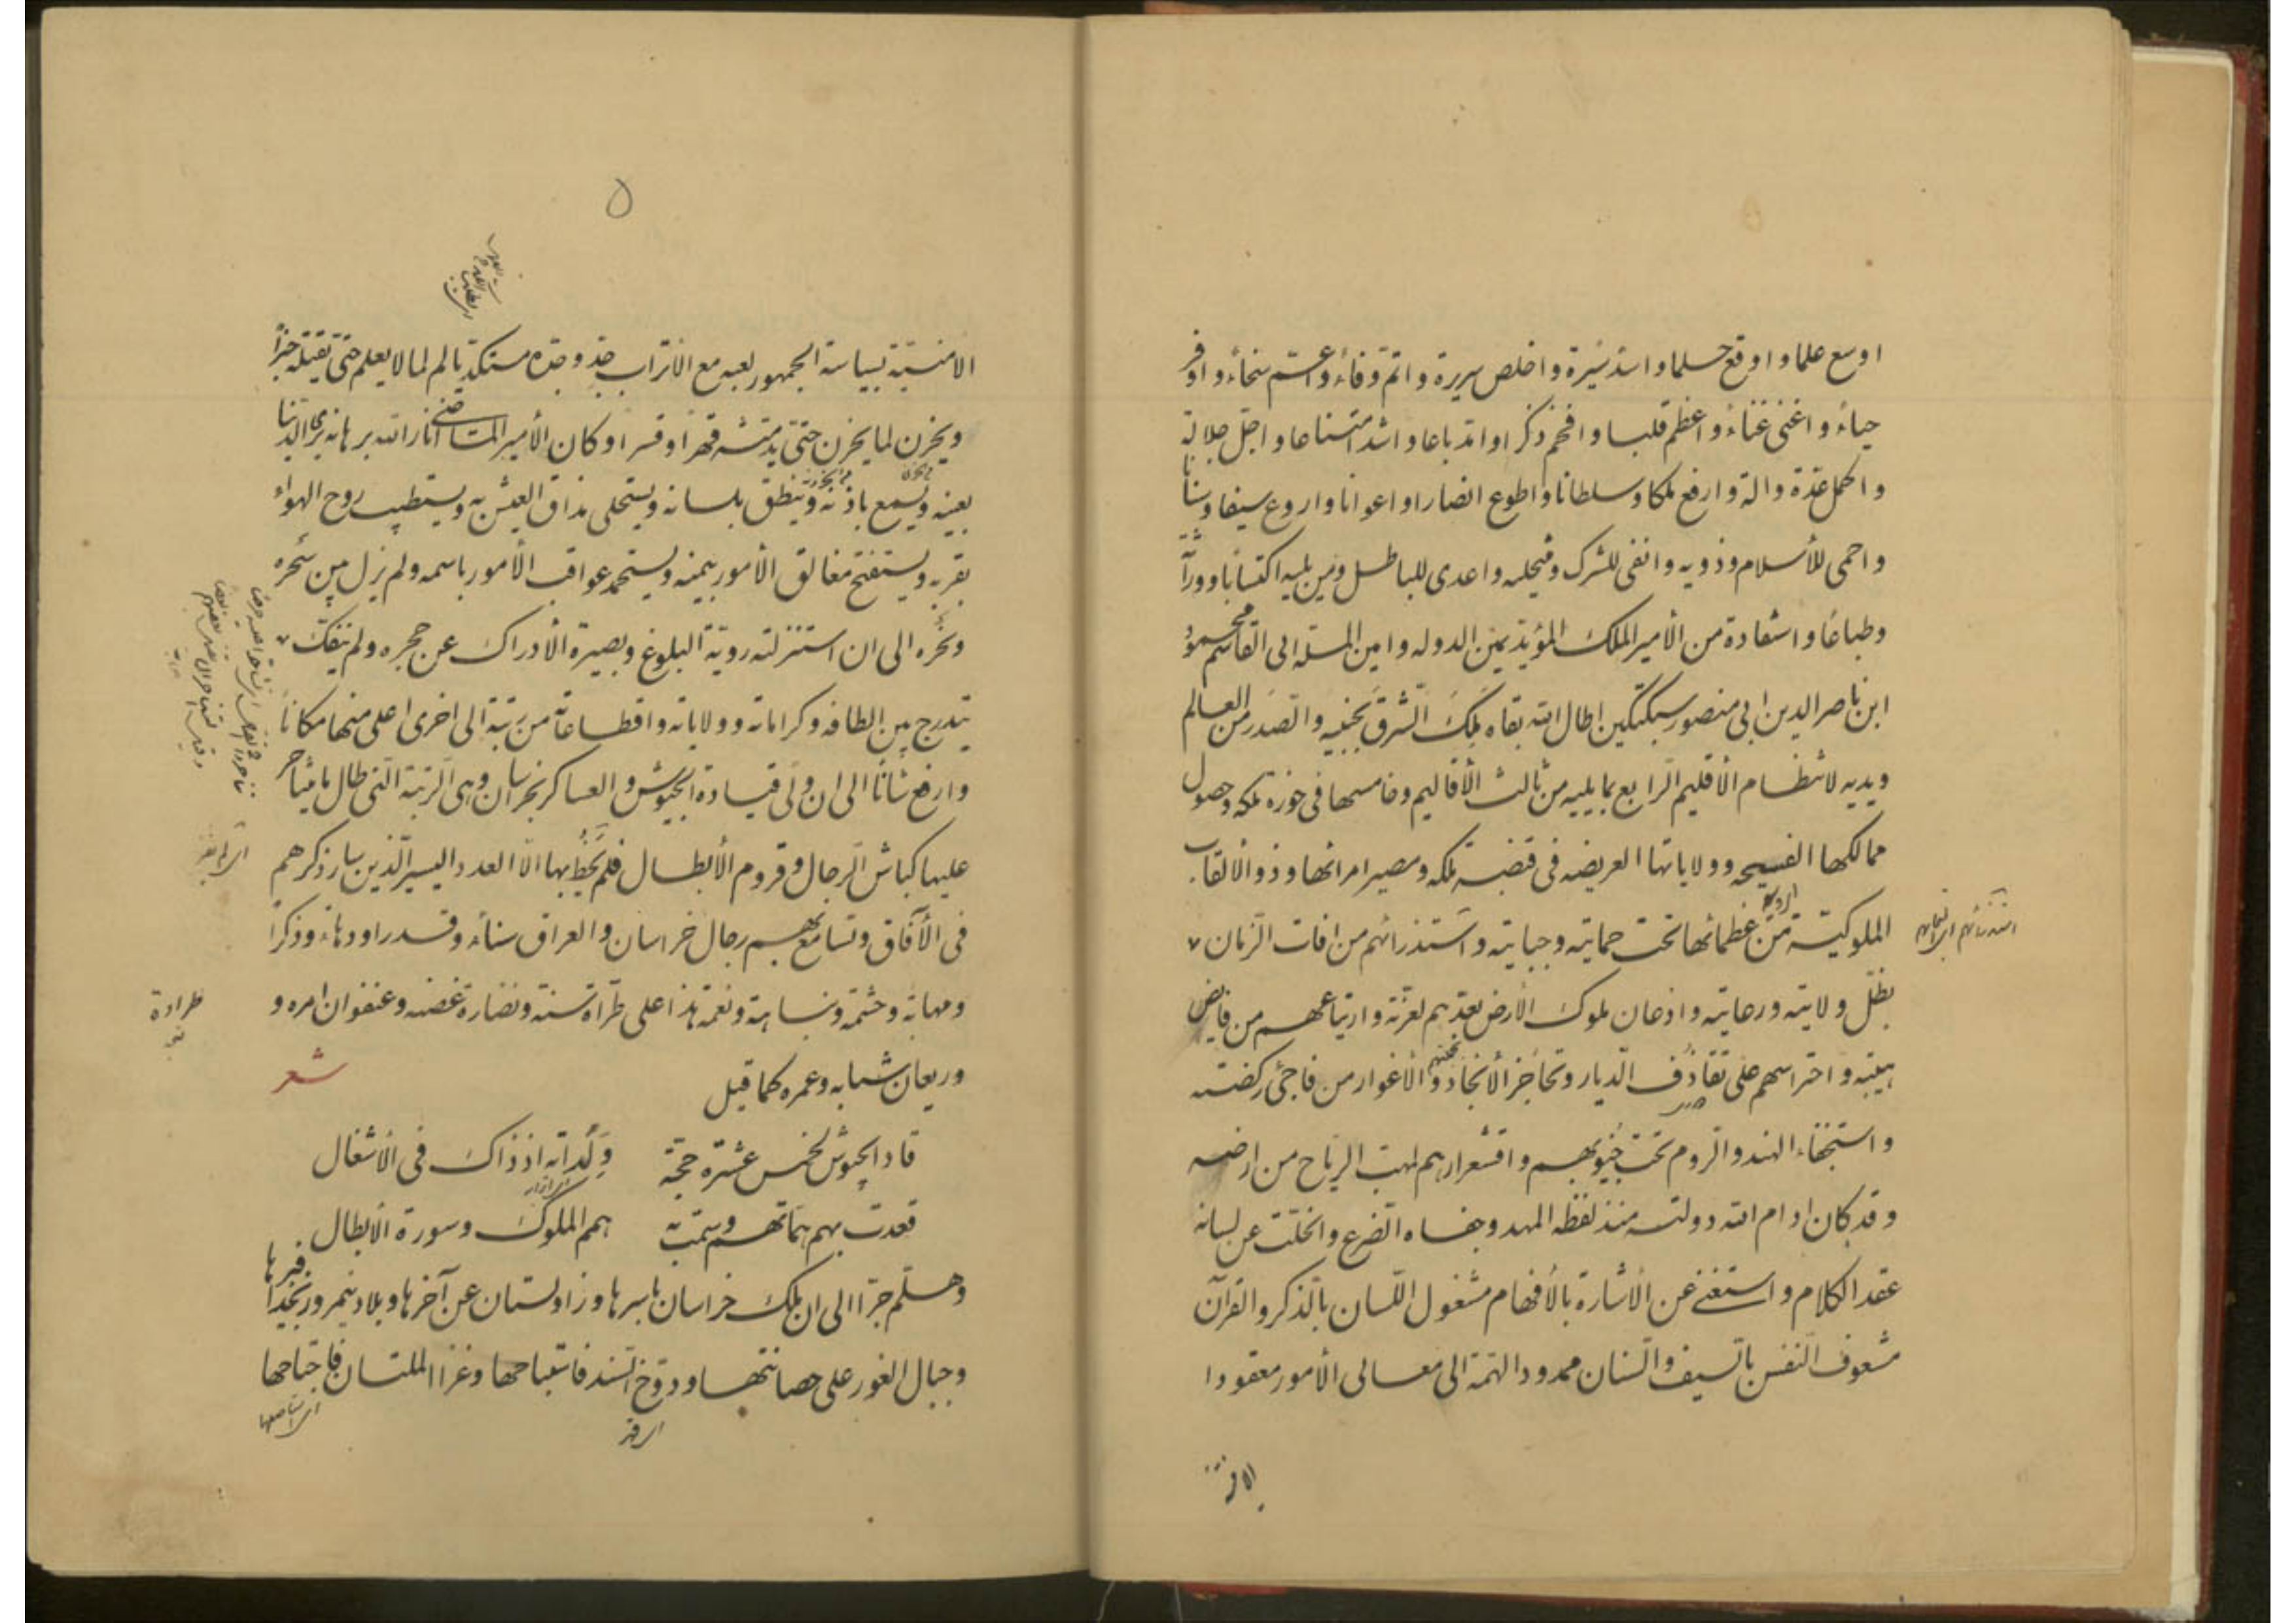 اوسع علما و اوقع حلما و اسد سيرة و اخلص سريرة و اتم وفاء و اعم سخاء و اوفر
حياء و اغنى غناء و اعظم قلبا و افخم ذكرا و امد باعا و اشد امتناعا و اجل جلالة
و اكمل عدة و آلة و ارفع ملكا و سلطانا و اطوع انصارا و اعوانا و اروع سيفا و سنانا
و احمى للأسلام و ذويه و انفى للشرك و منتحليه و اعدى للباطل و من يليه اكتسابا و وراثة
و طباعا و استفادة من الأمير الملك المؤيد يمين الدوله و امين المله ابى القاسم محمود
ابن ناصر الدين ابى منصور سبكتكين اطال الله بقاه ملك الشرق بجنبيه و الصدر من العالم
و يديه لانتظام الأقليم الرابع بما يليه من ثالث الأقاليم و خامسها فى حوزة ملكه و حصول
ممالكها الفسيحه و ولاياتها العريضه فى قبضة ملكه و مصير امرائها و ذو الالقاب
الملوكية من عظمائها تحت حمايته و جبايته و استذرائهم من افات الزمان
بظل ولايته و رعايته و اذعان ملوك الأرض بعدهم لعزته و ارتياعهم من فايض
هيبته و احتراسهم على تقاذف الديار و تحاجز الأنجاد و الأغوار من فاجئ ركضته
و استخفاء الهند و الروم تحت جيوبهم و اقشعرارهم لمهب الرياح من ارضه
و قد كان ادام الله دولته منذ لفظه المهد و جفاه الضرع و انحلت عن لسانه
عقد الكلام و استغنى عن الأشارة بالأفهام مشغول اللسان بالذكر و القرآن
مشعوف النفس بالسيف و السنان ممدود الهمة الى معالى الأمور معقودا
الامنية
٥
الامنية بسياسة الجمهور لعبه مع الاتراب جد و جده مستكد يألم لما لا يعلم حتى يقتله خبرا
و يحزن لما يحزن حتى يدمثه قهرا و قسرا و كان الأمير الماضى انار الله برهانه يرى الدنيا
بعينه و يسمع باذنه و ينطق بلسانه و يستحلى مذاق العيش به و يستطيب روح الهواء
بقربه و يستفتح مغالق الأمور بيمنه و يستحمد عواقب الأمور باسمه و لم يزل بين سحره
و نحره الى ان استنزلته روية البلوغ و بصيرة الأدراك عن حجره و لم ينفك
يتدرج بين الطافه و كراماته و ولاياته و اقطاعاته من رتبة الى اخرى اعلى منها مكانا
و ارفع شانا الى ان ولى قيادة الجيوش و العساكر بخراسان و هى الرتبة التى طال ما تشاجر
عليها كباش الرجال و قروم الأبطال فلم يحظ بها الا العدد اليسير الذين سار ذكرهم
فى الآفاق و تسامع بهم رجال خراسان و العراق سناء و قدرا و دهاء و ذكرا
و مهابة و حشمة و نباهة و نعمة هذا على طرآة سنه و نضارة غصنه و عنفوان امره و
و ريعان شبابه و عمره كما قيل
شعر
قاد الجيوش لخمس عشرة حجة و لداته اذ ذاك فى الاشغال
قعدت بهم هماتهم و سمت به همم الملوك و سورة الأبطال
و هلم جرا الى ان ملك خراسان باسرها و زاولستان عن آخرها و بلاد نيمروز بحذافيرها
و جبال الغور على حصانتها و دوخ السند فاستباحها و غزا الملتان فاجتاحها
طرادة
اى استاصلها